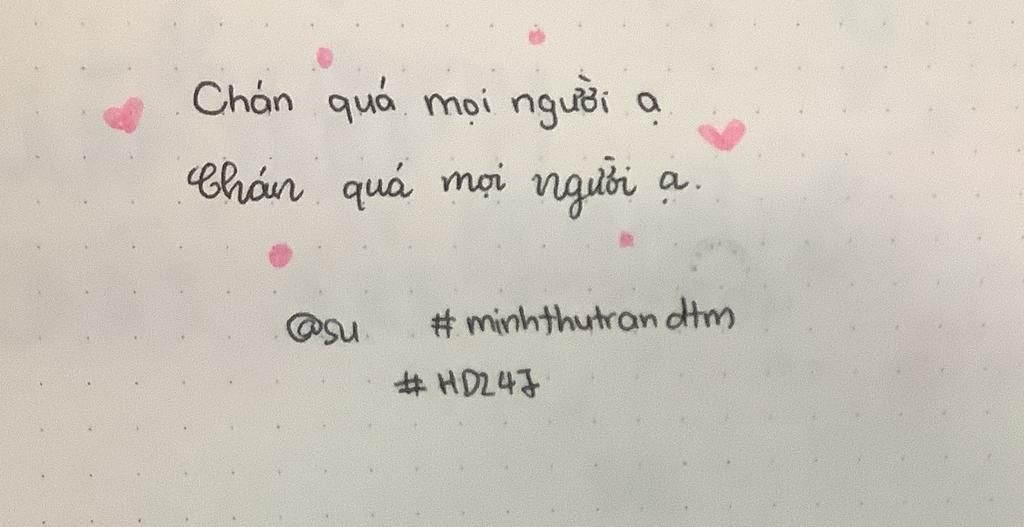 Chán quá mọi người ạ
Chán quá mọi người ạ.
@su #minhthutrandtm
#HD247